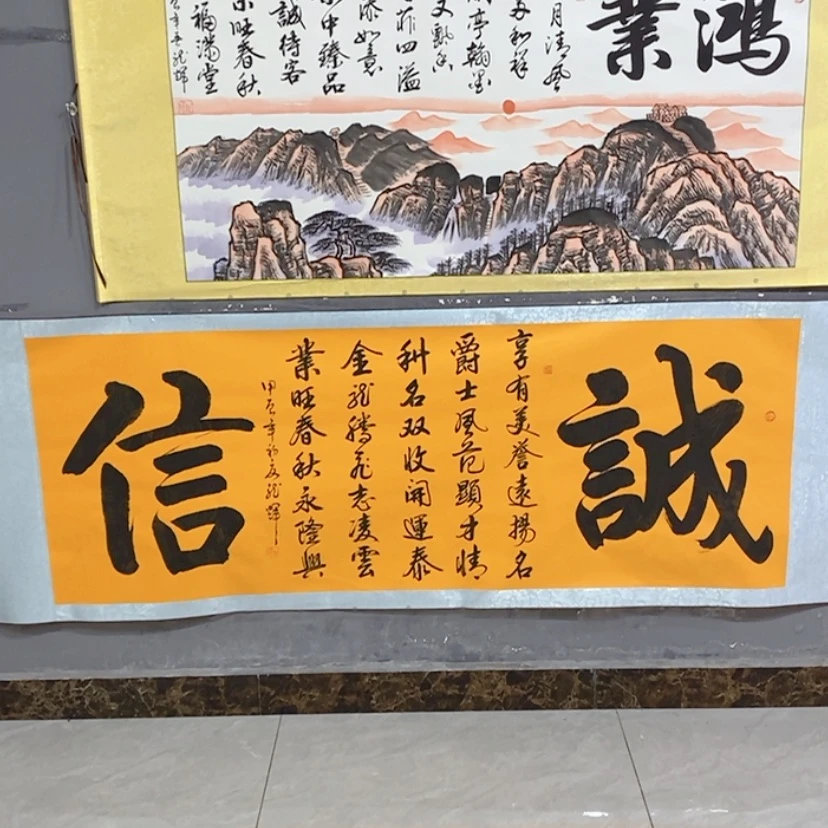 鴻
業
月清風
和祥
亭翰墨
四溢
添如意
中臻品
誠待客
旺春秋
福滿堂
誠
享有美譽遠揚名
爵士風范顯才情
利名双收開運泰
金龍騰飛志凌雲
業旺春秋永隆興
甲辰年初夏龍輝
信